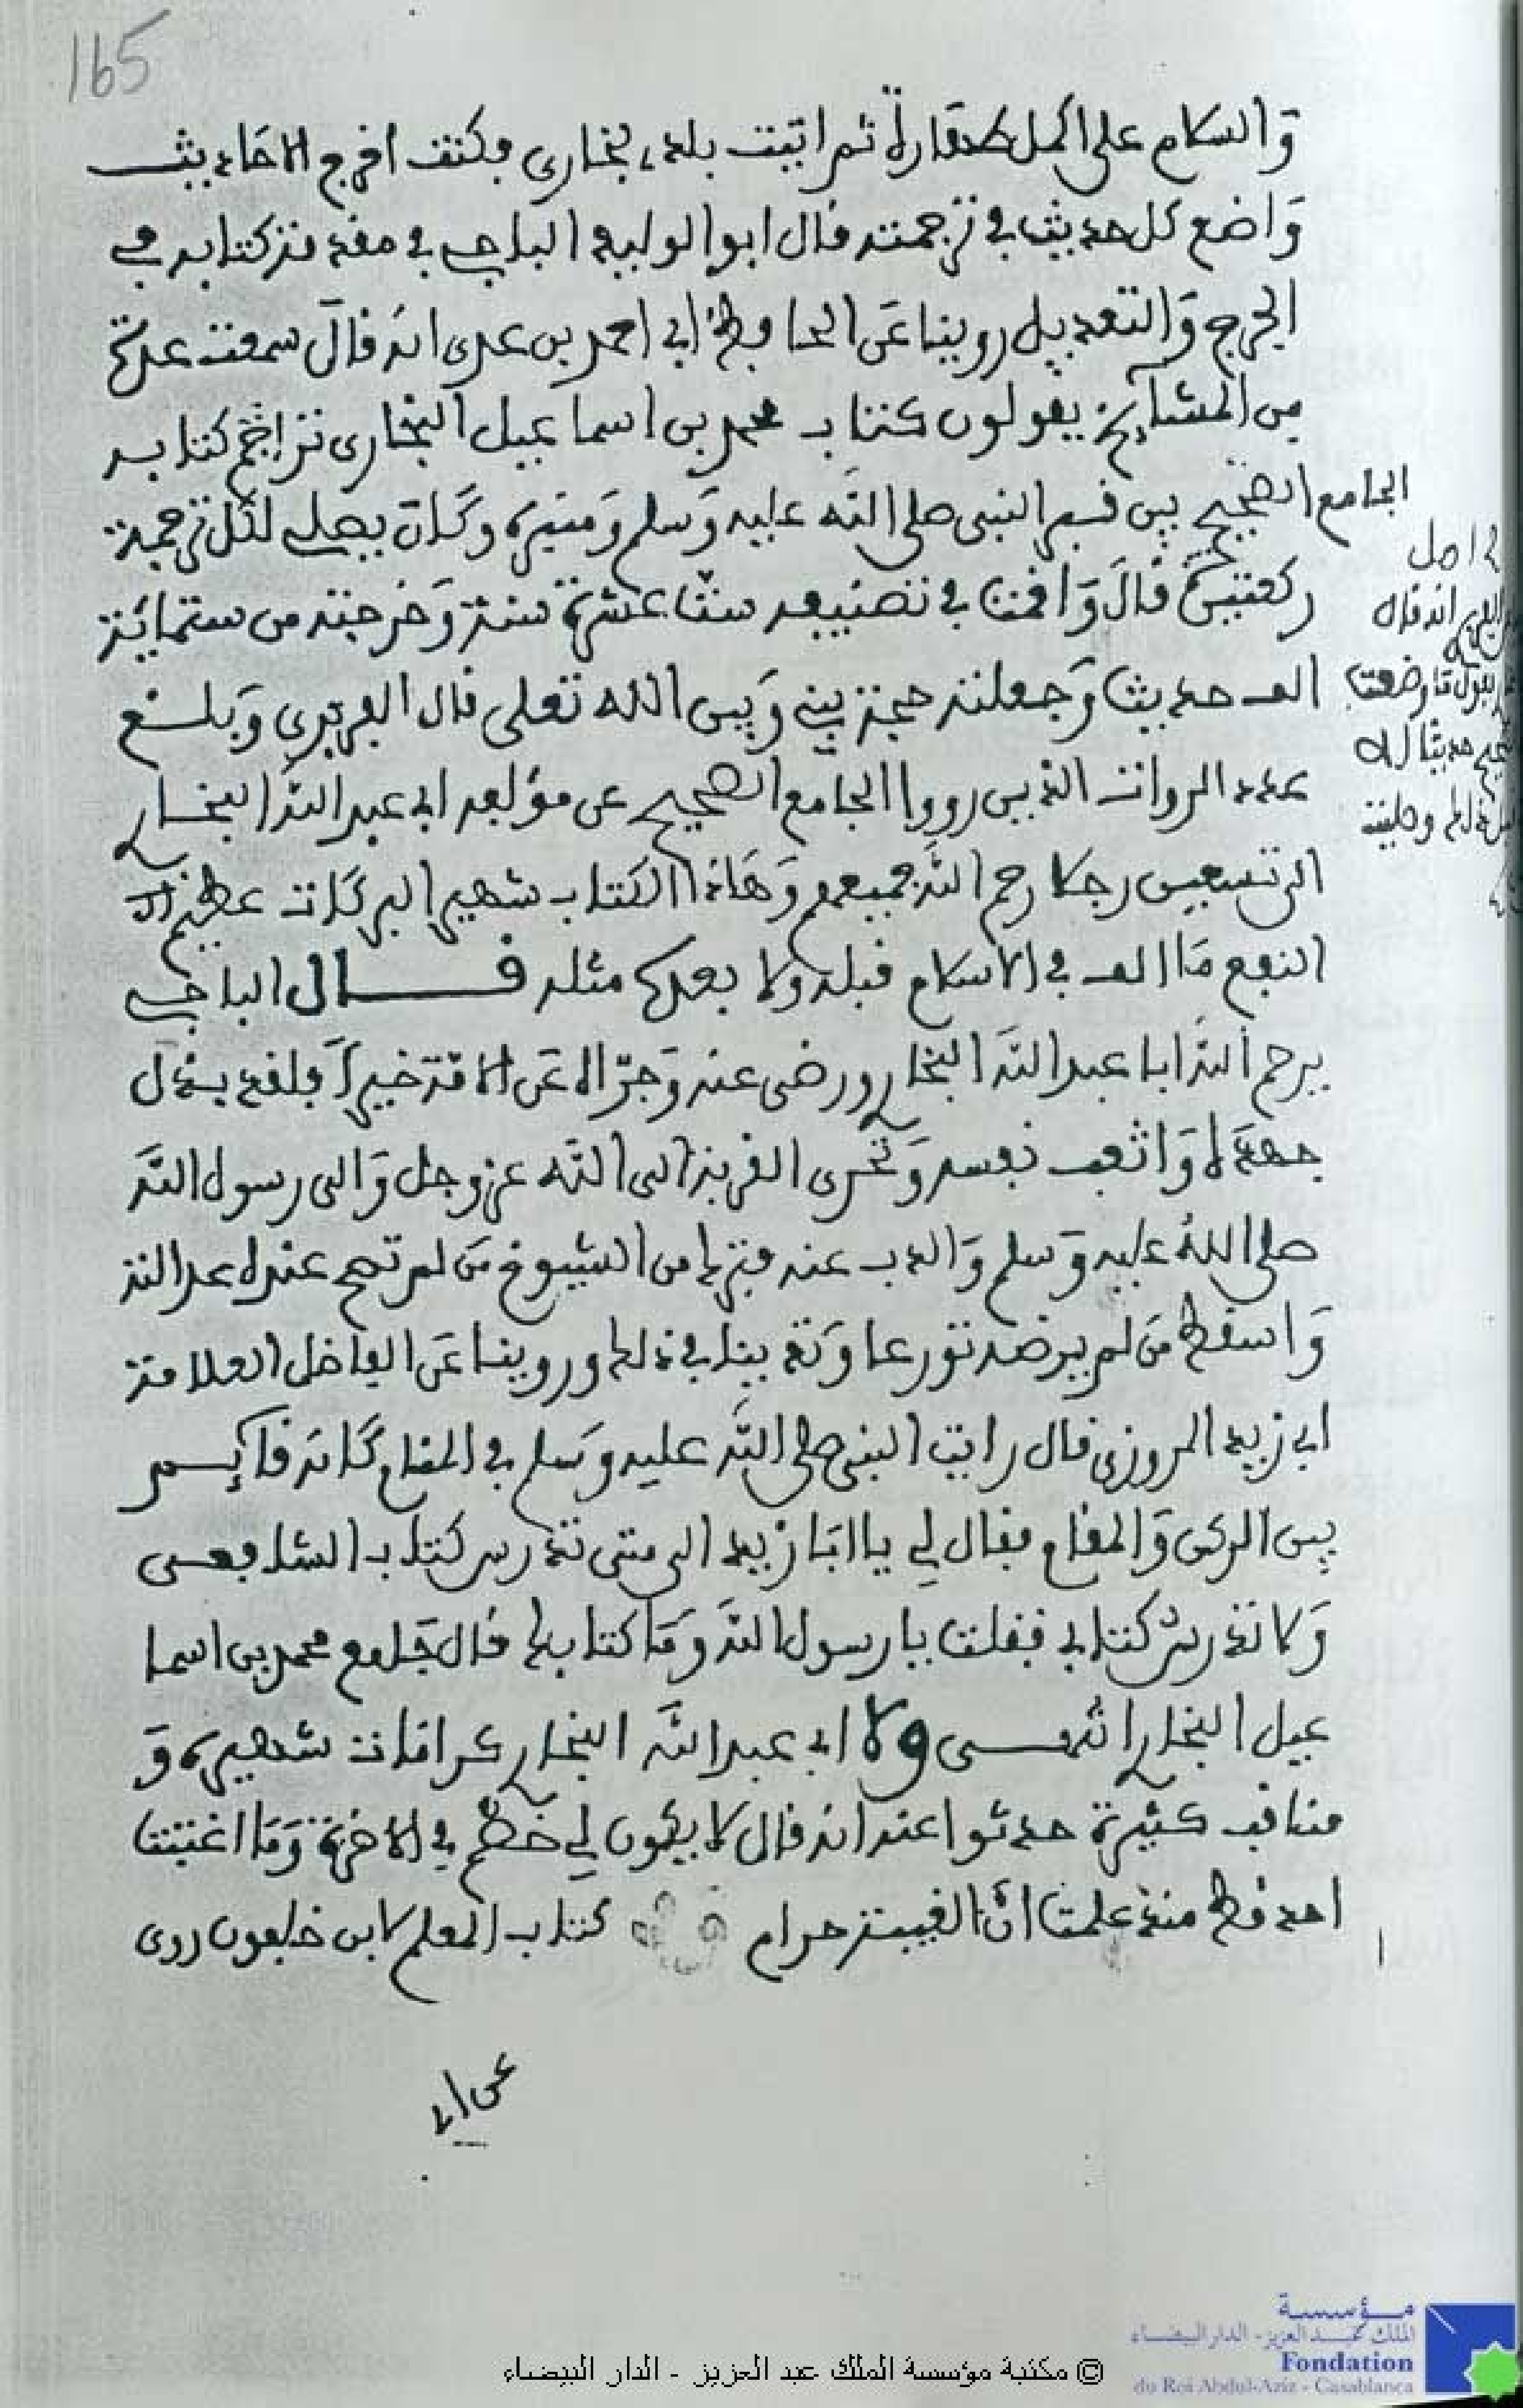 165
وَالسلام على اكمل طهارة ثم اتيت بلد بخارى فكنت اخرج الاحاديث
وَاضع كل حديث في ترجمته قال ابو الوليد الباجي في مقدمة كتابه في
الجرح وَالتعديل روينا عَن الحافظ ابي احمد بن عدى انه قال سمعت عدة
من المشايخ يقولون كتاب محمد بن اسماعيل البخارى تراجم كتابه
الجامع الصحيح بين قبر النبي صلى الله عليه وَسلم وَمنبره وكَان يصلي لكل ترجمة
ركعتين قالَ وَاقمت في تصنيفه ست عشرة سنة وَخرجته من ستمائة
الف حديث وَجعلته حجة بيني وَبين الله تعلى قال الفربري وَبلغ
عدد الروات الذين رووا الجامع الصحيح عن مؤلفه ابي عبد الله البخاري
الى تسعين رجلا رحم الله جميعهم وَهَاذا الكتاب شهير البركَات عظيم
النفع مَا الف في الاسلام قبله ولا بعده مثله قال الباجي
يرحم الله ابا عبد الله البخاري ورضى عنه وَجزاه عَن الامة خيرا فلقد بذل
جهدَه وَاتعب نفسه وَتحرى القربة الى الله عز وجل وَالى رسول الله
صلى اللهُ عليه وَسلم وَالذب عنه فترك من الشيوخ مَن لم تصح عنده عدالته
وَاسقط مَن لم يرضه تورعا وَتدينا في ذلك وروينا عَن الفاضل العلامة
ابي زيد المروزي قال رايت النبي صلى الله عليه وسلم في المنام كَانه قائم
بين الركن وَالمقام فقال لي يا ابَا زيد الى متى تدرس كتاب الشافعي
وَلا تدرس كتابي فقلت يا رسول الله وَمَا كتابك قال جَامع محمد بن اسما
عيل البخاري انتهى ولابي عبد الله البخاري كرامات شهيرة وَ
مناقب كثيرة حدثوا عنه انه قال لا يكون لي خصم في الاخرة وَمَا اغتبت
احد قط منذ علمت انّ الغيبة حرام كتاب المعلم لابن خلفون روى
عن ابي
في اصل
انه قال
يقول مَا وضعت
حديثا الا
ذلك وصليت
© مكتبة مؤسسة الملك عبد العزيز - الدار البيضاء
مؤسسة
الملك عبد العزيز - الدار البيضاء
Fondation
du Roi Abdul-Aziz - Casablanca